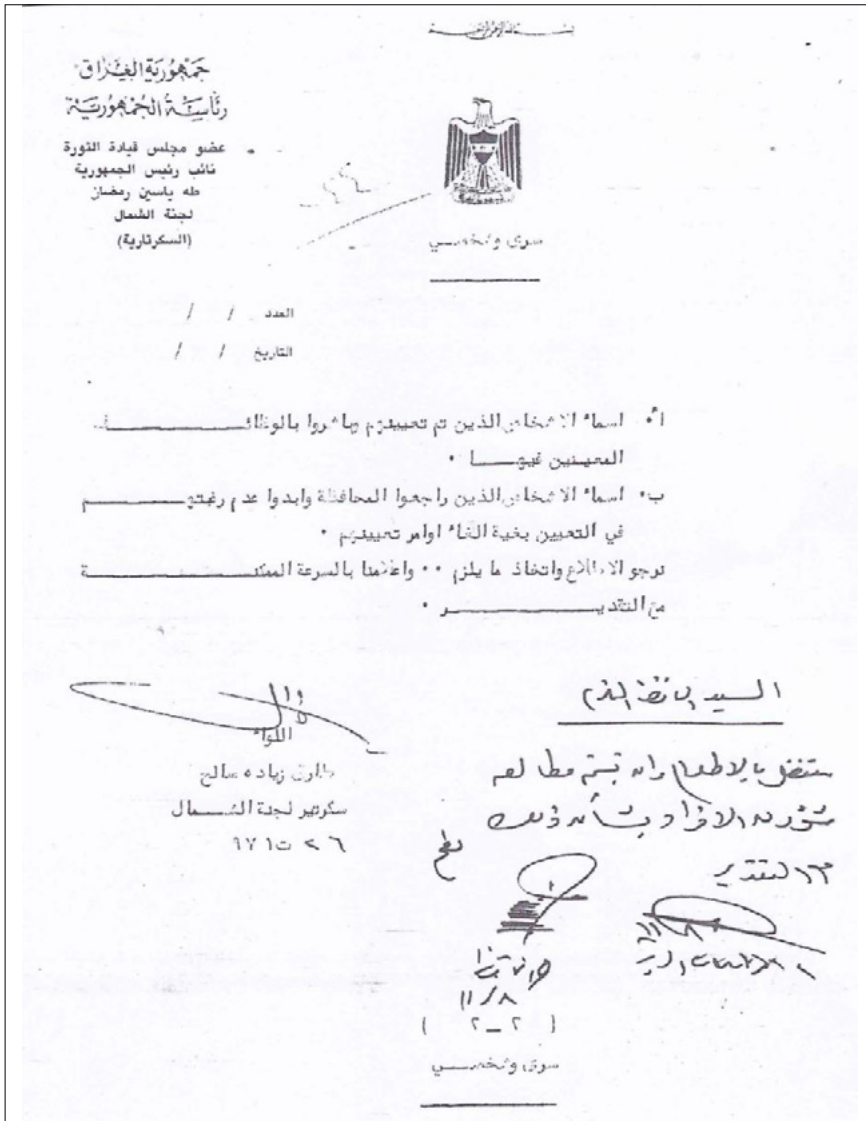 بسم الله الرحمن الرحيم
جمهورية العراق
رئاسة الجمهورية
عضو مجلس قيادة الثورة
نائب رئيس الجمهورية
طه ياسين رمضان
لجنة الشمال
(السكرتارية)
سرى وشخصــي
العدد / /
التاريخ / /
أ٠ اسماء الاشخاص الذين تم تعيينهم وباشروا بالوظائــــــف
المعينين فيهــــا ٠
ب٠ اسماء الاشخاص الذين راجعوا المحافظة وابدوا عدم رغبتهــــــم
في التعيين بغية الغاء اوامر تعيينهم ٠
نرجو الاطلاع واتخاذ ما يلزم ٠٠ واعلامنا بالسرعة الممكنــــــة
مع التقديــــــــر ٠
اللواء
طارق زياده صالح
سكرتير لجنة الشــــمال
٢٦ ت١
السيد المحافظ المحترم
للتفضل بالاطلاع
بشأن ذلك
مع التقدير
١١/٨
( ٢ــ٢ )
سرى وشخصــي